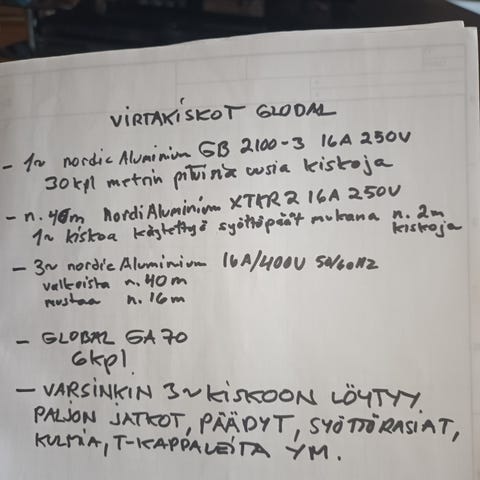 VIRTAKISKOT GLOBAL
- 1~ nordic Aluminium GB 2100-3 16A 250V
30kpl metrin pituisia uusia kiskoja
- n. 40m Nordic Aluminium XTKR2 16A 250V
1~ kiskoa käytettyä syöttöpäät mukana n. 2m
kiskoja
- 3~ nordic Aluminium 16A/400V 50/60Hz
valkoista n. 40m
mustaa n. 16m
- GLOBAL GA70
6kpl
- VARSINKIN 3~ KISKOON LÖYTYY
PALJON JATKOT, PÄÄDYT, SYÖTTÖRASIAT,
KULMIA, T-KAPPALEITA YM.